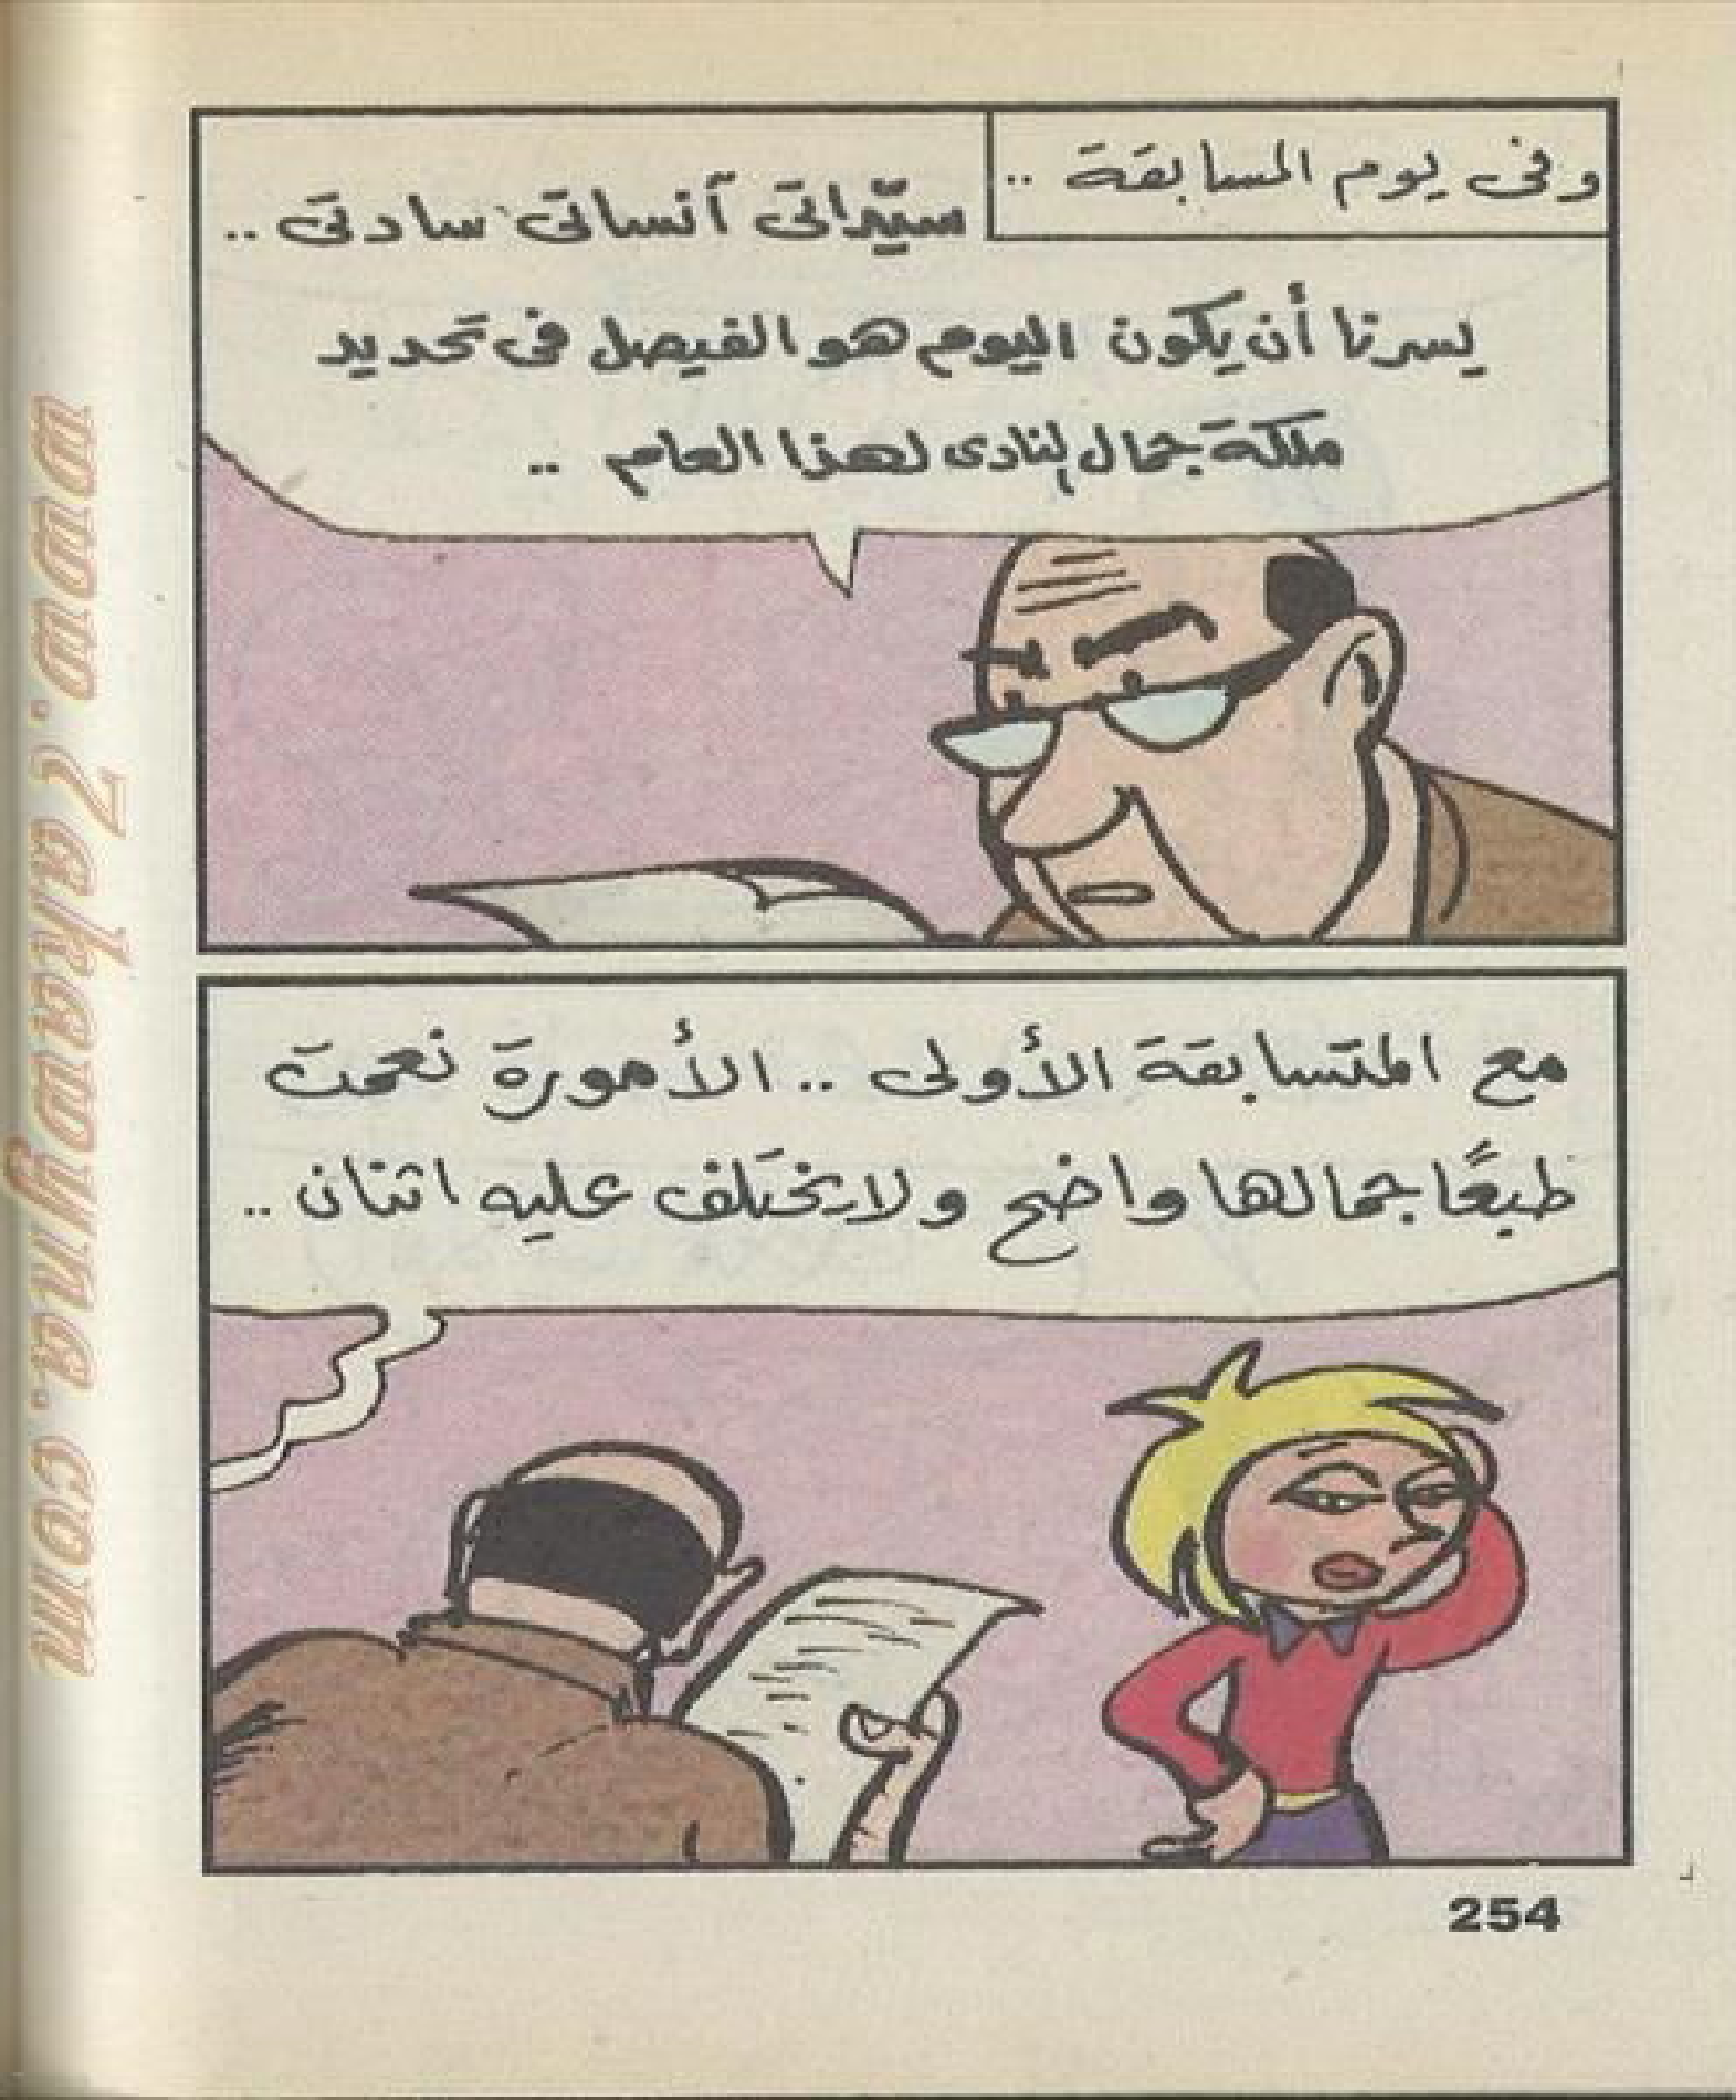 وفى يوم المسابقة ..
سيّداتى آنساتى سادتى ..
يسرنا أن يكون اليوم هو الفيصل فى تحديد
ملكة جمال النادى لهذا العام ..
مع المتسابقة الأولى .. الأمورة نعمت
طبعًا جمالها واضح ولا يختلف عليه اثنان ..
254
www.7akawyna.com